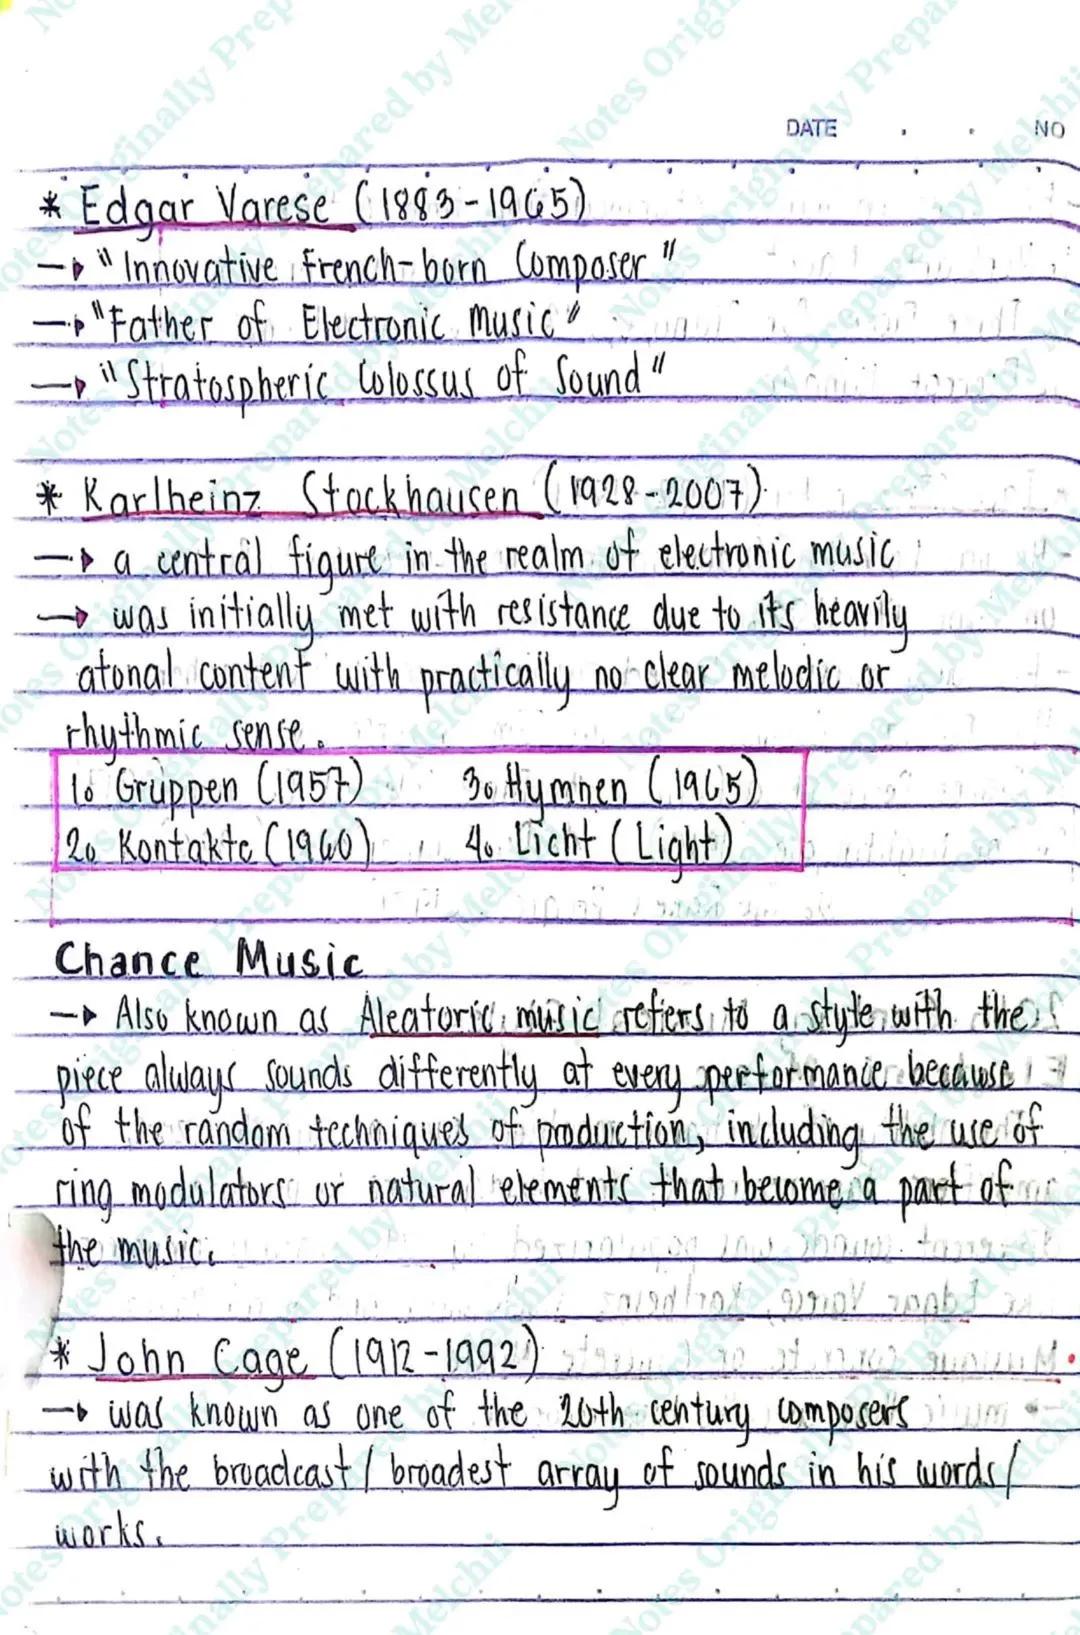 DATE . . NO
* Edgar Varese (1883-1965)
→ "Innovative French-born Composer"
→ "Father of Electronic Music"
→ "Stratospheric Colossus of Sound"
* Karlheinz Stockhausen (1928-2007)
→ a central figure in the realm of electronic music
→ was initially met with resistance due to its heavily
atonal content with practically no clear melodic or
rhythmic sense.
1. Grüppen (1957) 3. Hymnen (1965)
2. Kontakte (1960) 4. Licht (Light)
Chance Music
→ Also known as Aleatoric music refers to a style with the
piece always sounds differently at every performance because
of the random techniques of production, including the use of
ring modulators or natural elements that become a part of
the music.
* John Cage (1912-1992)
→ was known as one of the 20th century composers
with the broadcast / broadest array of sounds in his words/
works.
Notes Originally Prepared by Melchii